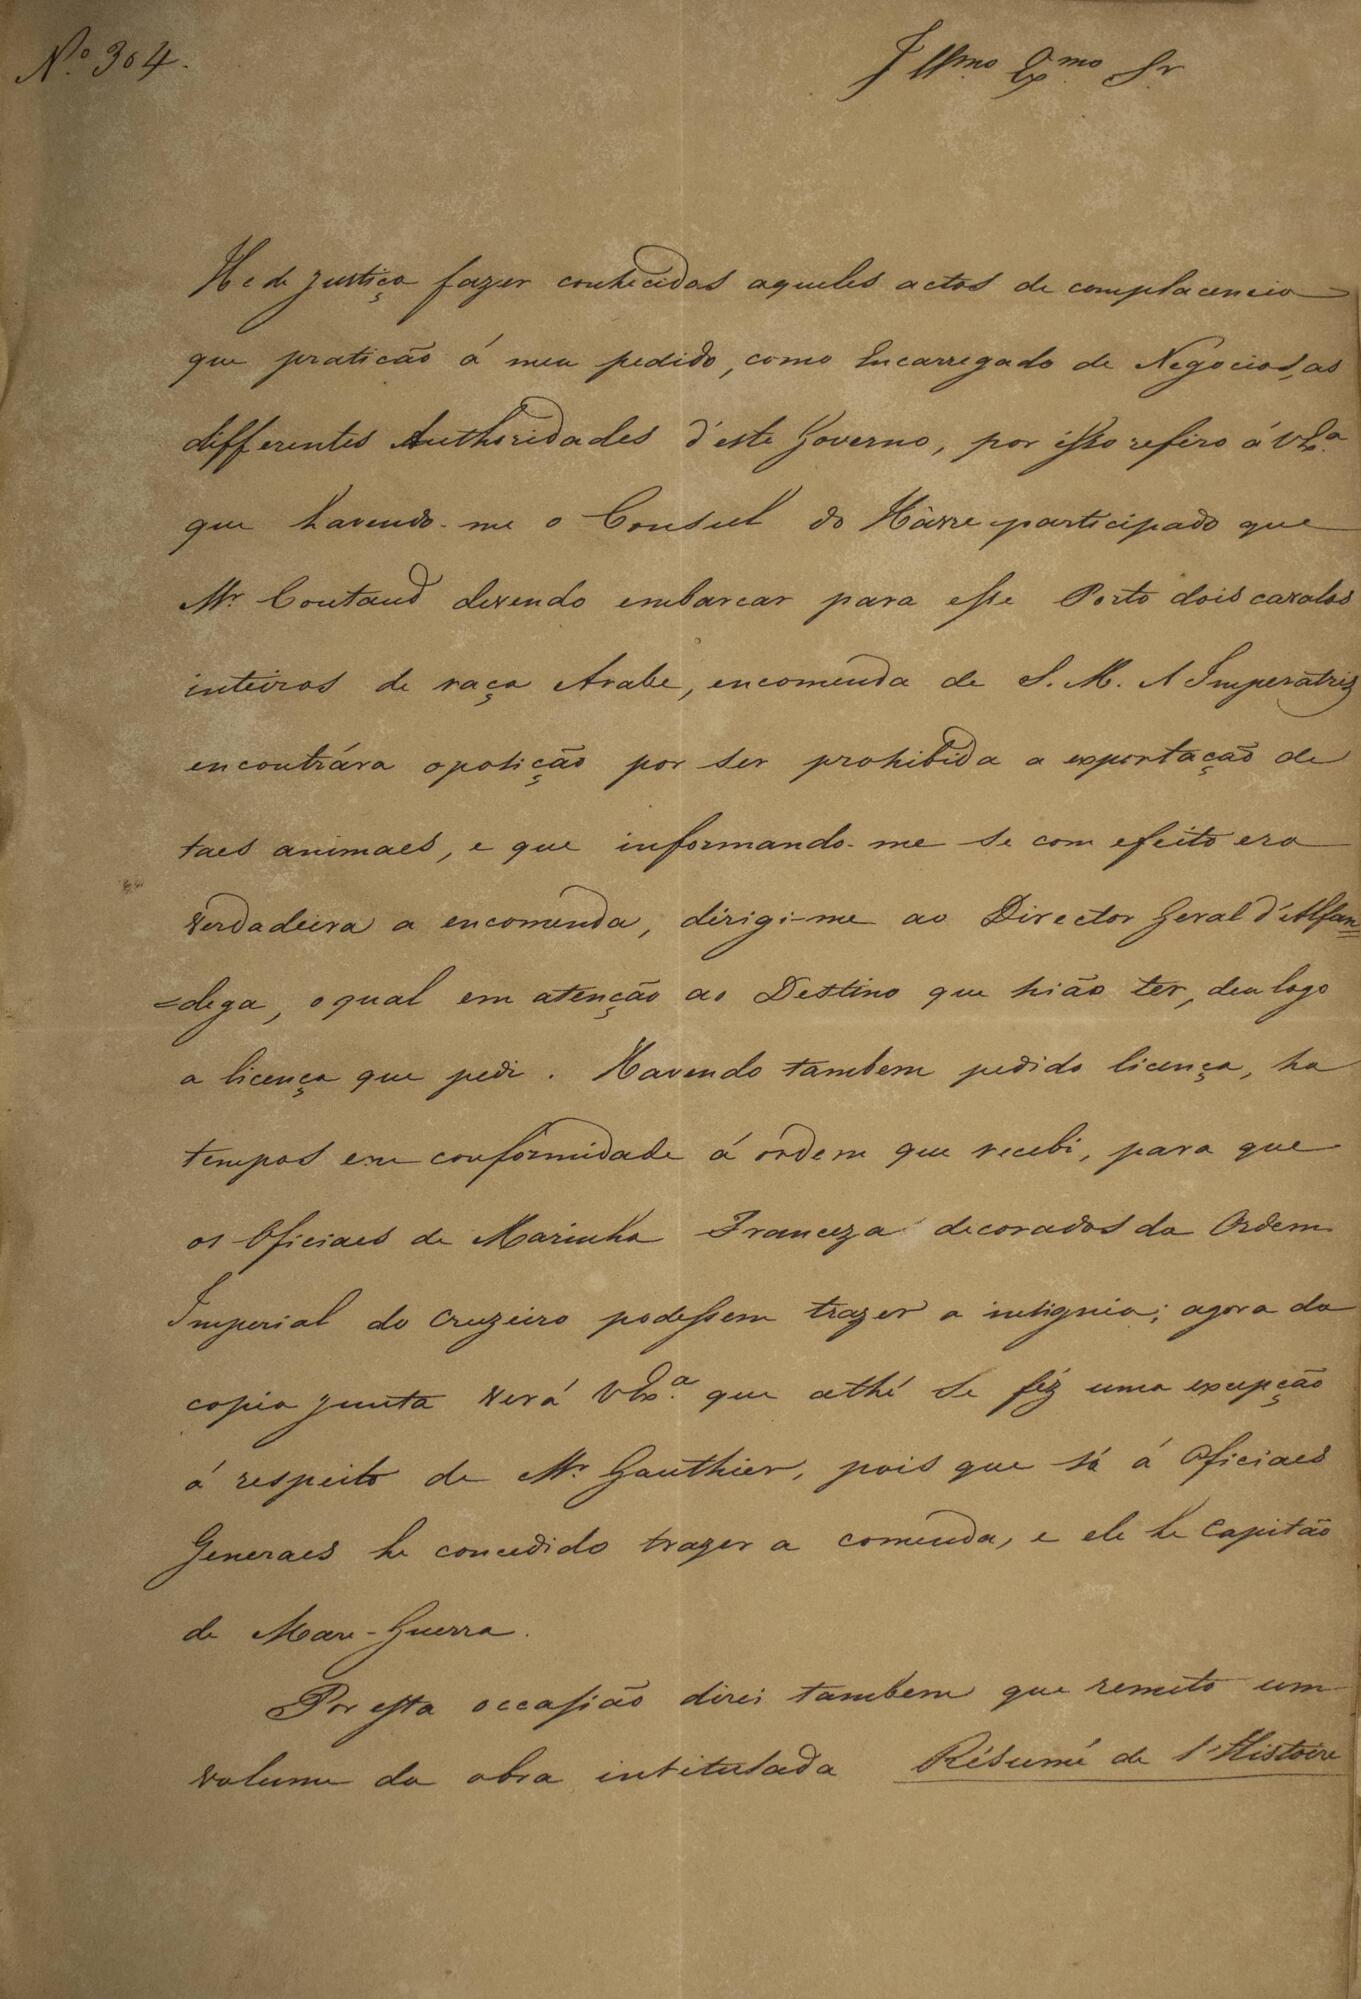 Nº 304.
Illmo Exmo Sr
He de justiça fazer conhecidos aqueles actos de complacencia
que praticão á meu pedido, como Encarregado de Negocios, as
differentes Authoridades d'este Governo, por isso refiro á VExa.
que havendo-me o Consul do Hàvre participado que
Mr. Coutaud devendo embarcar para esse Porto dois cavalos
inteiros de raça Arabe, encomenda de S. M. A Imperatriz
encontrára oposição por ser prohibida a exportação de
taes animaes, e que informando-me se com efeito era
verdadeira a encomenda, dirigi-me ao Director Geral d'Alfan=
=dega, o qual em atenção ao Destino que hião ter, deu logo
a licença que pedi. Havendo tambem pedido licença, ha
tempos em conformidade á ordem que recebi, para que
os Oficiaes de Marinha Franceza decorados da Ordem
Imperial do Cruzeiro podessem trazer a insignia; agora da
copia junta verá VExa. que athé se féz uma excepção
á respeito de Mr. Gauthier, pois que só á Oficiaes
Generaes he concedido trazer a comenda, e ele he Capitão
de Mar e-Guerra.
Por esta occasião direi tambem que remeto um
volume da obra intitulada Résumé de l'Histoire